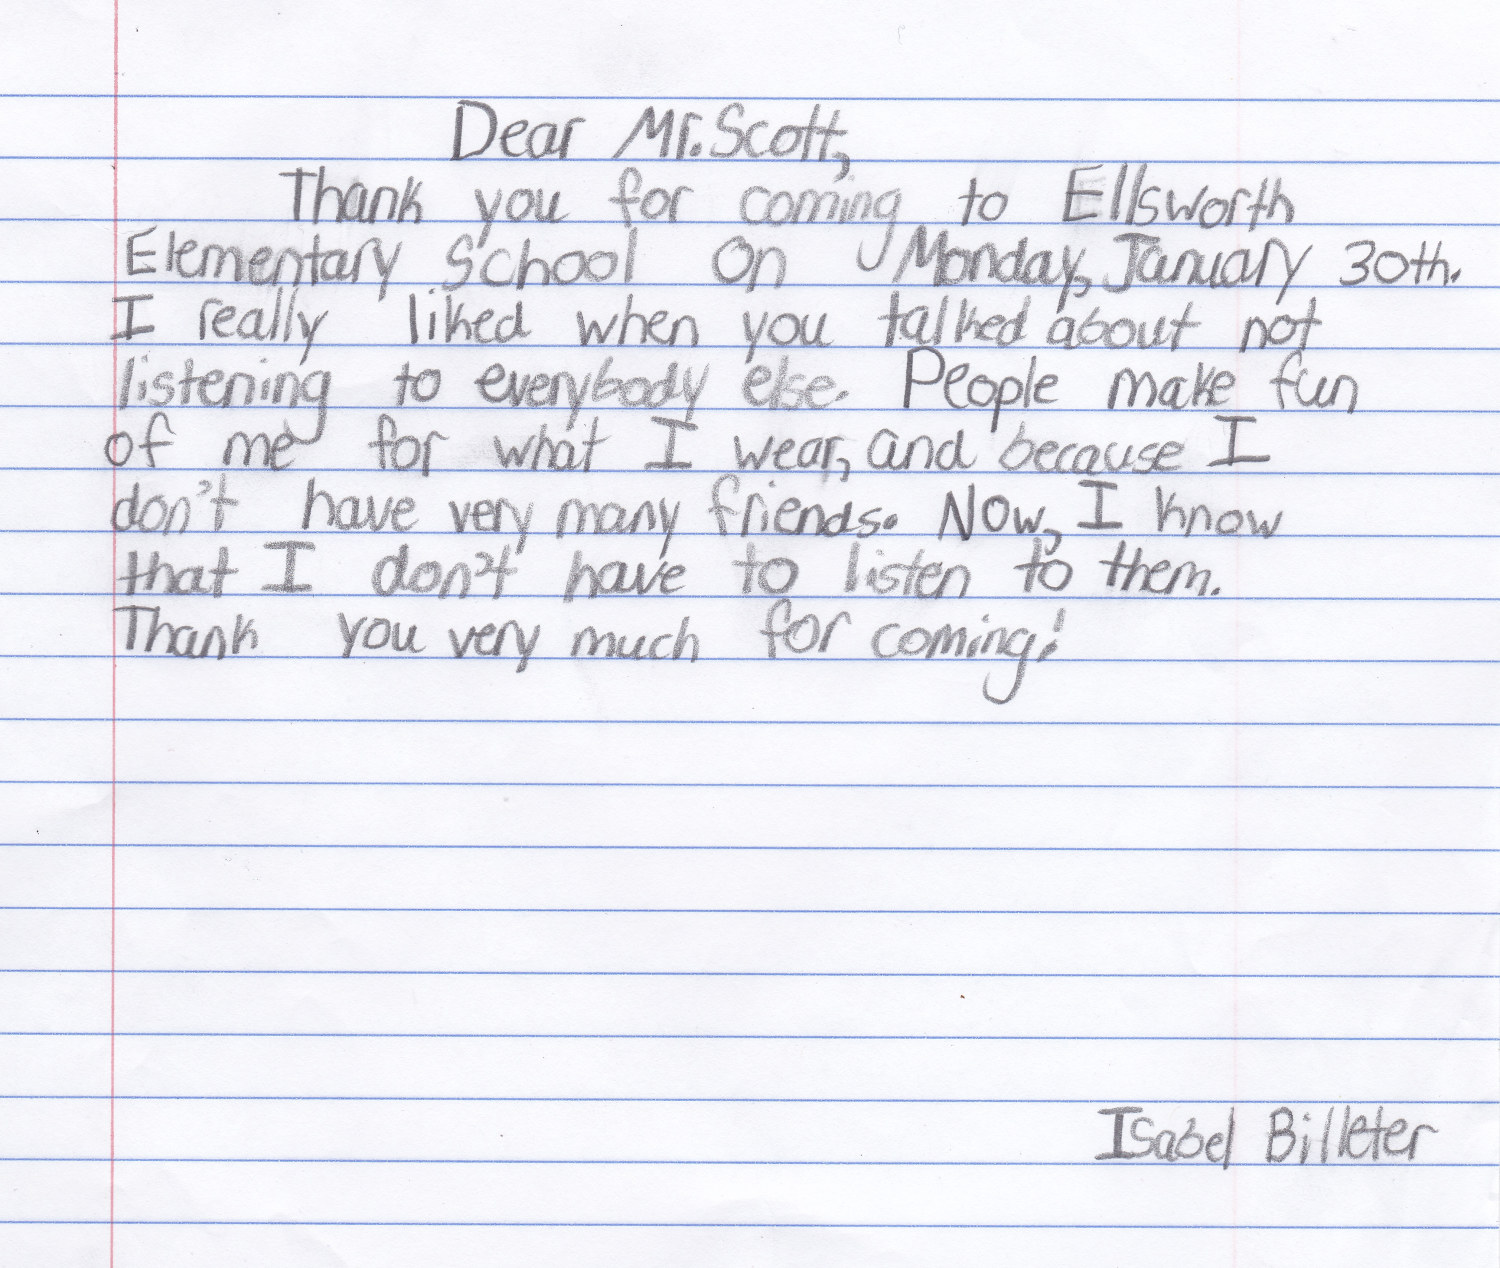 Dear Mr. Scott,
Thank you for coming to Ellsworth
Elementary School on Monday, January 30th.
I really liked when you talked about not
listening to everybody else. People make fun
of me for what I wear, and because I
don't have very many friends. Now, I know
that I don't have to listen to them.
Thank you very much for coming!
Isabel Billeter